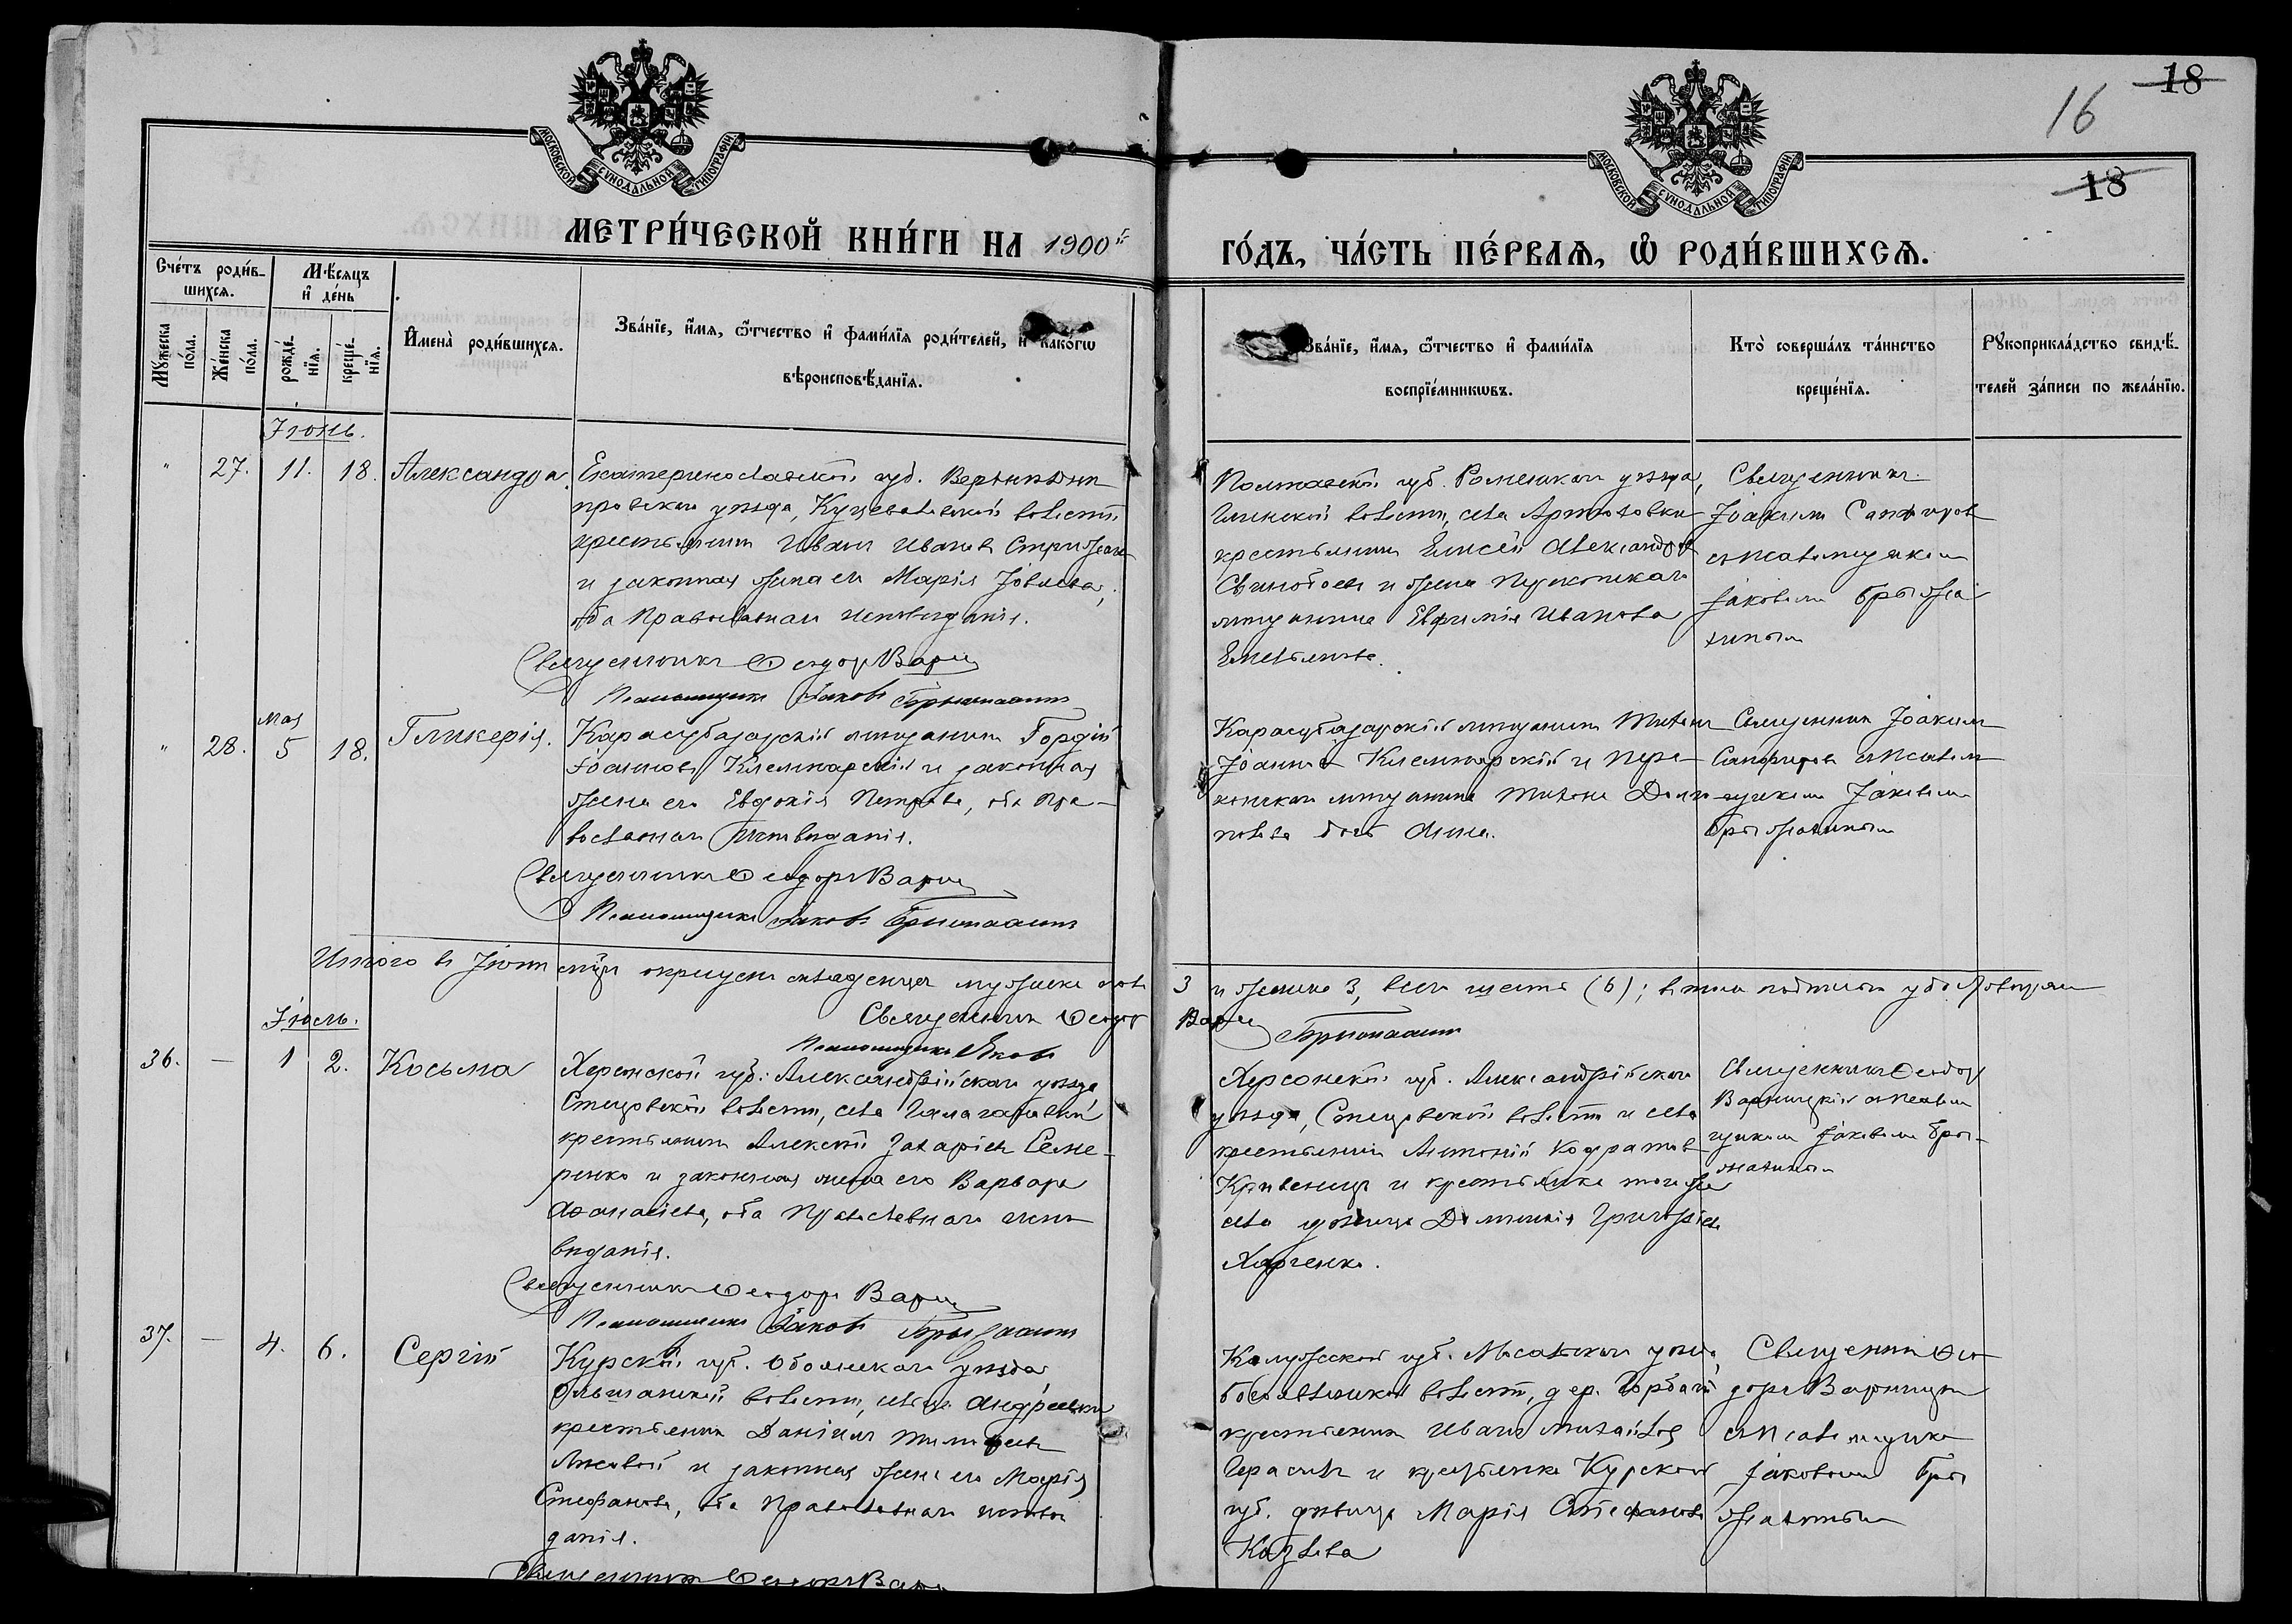 18
16
18
МОСКОВСКОЙ СѴНОДАЛЬНОЙ ТИПОГРАФІИ
МОСКОВСКОЙ СѴНОДАЛЬНОЙ ТИПОГРАФІИ
МЕТРИ́ЧЕСКОЙ КНИ́ГИ НА 1900й
ГО́ДЪ, ЧА́СТЬ ПЕ́РВАѦ, Ѡ РОДИ́ВШИХСѦ.
Сче́тъ роди́в-
шихсѧ.
Мѣ́сяцъ
и҆ де́нь
Мꙋ́жеска
по́ла.
Же́нска
по́ла.
рожде́-
нїѧ.
креще́-
нїѧ.
И҆мена̀ роди́вшихсѧ.
Зва́нїе, и҆́мѧ, ѻ҆́тчество и҆ фами́лїѧ роди́телей, и҆ како́гѡ
вѣроисповѣ́данїѧ.
Зва́нїе, и҆́мѧ, ѻ҆́тчество и҆ фами́лїѧ
воспрїе́мникѡвъ.
Кто̀ соверша́лъ та́инство
креще́нїѧ.
Рꙋкоприкла́дство свидѣ́-
телей за́писи по жела́нїю.
Іюнь.
" 27. 11. 18. Александра.
Екатеринославской губ. Верхнеднѣ
провскаго уѣзда, волости
крестьянинъ Иванъ Ивановъ
и законная жена его Марія Іовлева,
оба Православнаго исповѣданія.
Священникъ Ѳеодоръ Варн
Псаломщикъ Іаковъ
Полтавской губ. Роменскаго уѣзда,
Глинской волости, села Артюховки
крестьянинъ Елисей Александровъ
и жена Перекопскаго
мѣщанина Евфимія Иванова
Емельянова.
Священникъ
Іоакимъ Сапфировъ
съ псаломщикомъ
Іаковомъ Брыжа
хинымъ
Мая
" 28. 5 18. Гликерія.
Карасубазарскій мѣщанинъ Гордій
Іоанновъ Клемпарскій и законная
жена его Евдокія Петрова, оба Пра-
вославнаго исповѣданія.
Священникъ Ѳеодоръ Варн
Псаломщикъ Іаковъ
Карасубазарскій мѣщанинъ
Іоанновъ Клемпарскій и Пере-
копскаго мѣщанина Тихона
дочь Анна.
Священникъ Іоакимъ
Сапфировъ съ псалом-
щикомъ Іаковомъ
Брыжахинымъ
Итого въ Іюнѣ мѣсяцѣ окрещено младенцевъ мужеска пола 3 и женска 3, всего шесть (6); въ томъ подписомъ удостовѣряемъ
Священникъ Ѳеодоръ Варн
Псаломщикъ Яковъ
Іюль.
36. — 1 2. Косьма
Херсонской губ. Александрійскаго уѣзда
Стецовской волости, села
крестьянинъ Алексѣй Захаріевъ Семе-
ренко и законная жена его Варвара
Аѳанасіева, оба Православнаго испо
вѣданія.
Священникъ Ѳеодоръ Варн
Псаломщикъ Іаковъ
Херсонской губ. Александрійскаго
уѣзда, Стецовской волости и села
крестьянинъ Антоній Кодратовъ
и крестьянка того же
села дѣвица Домникія Григорьева
Харченко.
Священникъ Ѳеодоръ
Варницкій съ псалом
щикомъ Іаковомъ Бры-
жахинымъ
37. — 4. 6. Сергій
Курской губ. Обоянскаго уѣзда
Ольшанской волости, села Андреевки
крестьянинъ Даніилъ
и законная жена его Марія
Стефанова, оба Православнаго исповѣ
данія.
Священникъ Ѳеодоръ Варн
Калужской губ. Мосальскаго уѣзда,
волости, дер. Горбачи
крестьянинъ Иванъ Михайловъ
Герасимовъ и крестьянка Курской
губ. дѣвица Марія Стефанова
Козлова
Священникъ Ѳео
доръ Варницкій
съ псаломщикомъ
Іаковомъ Бры
жахинымъ